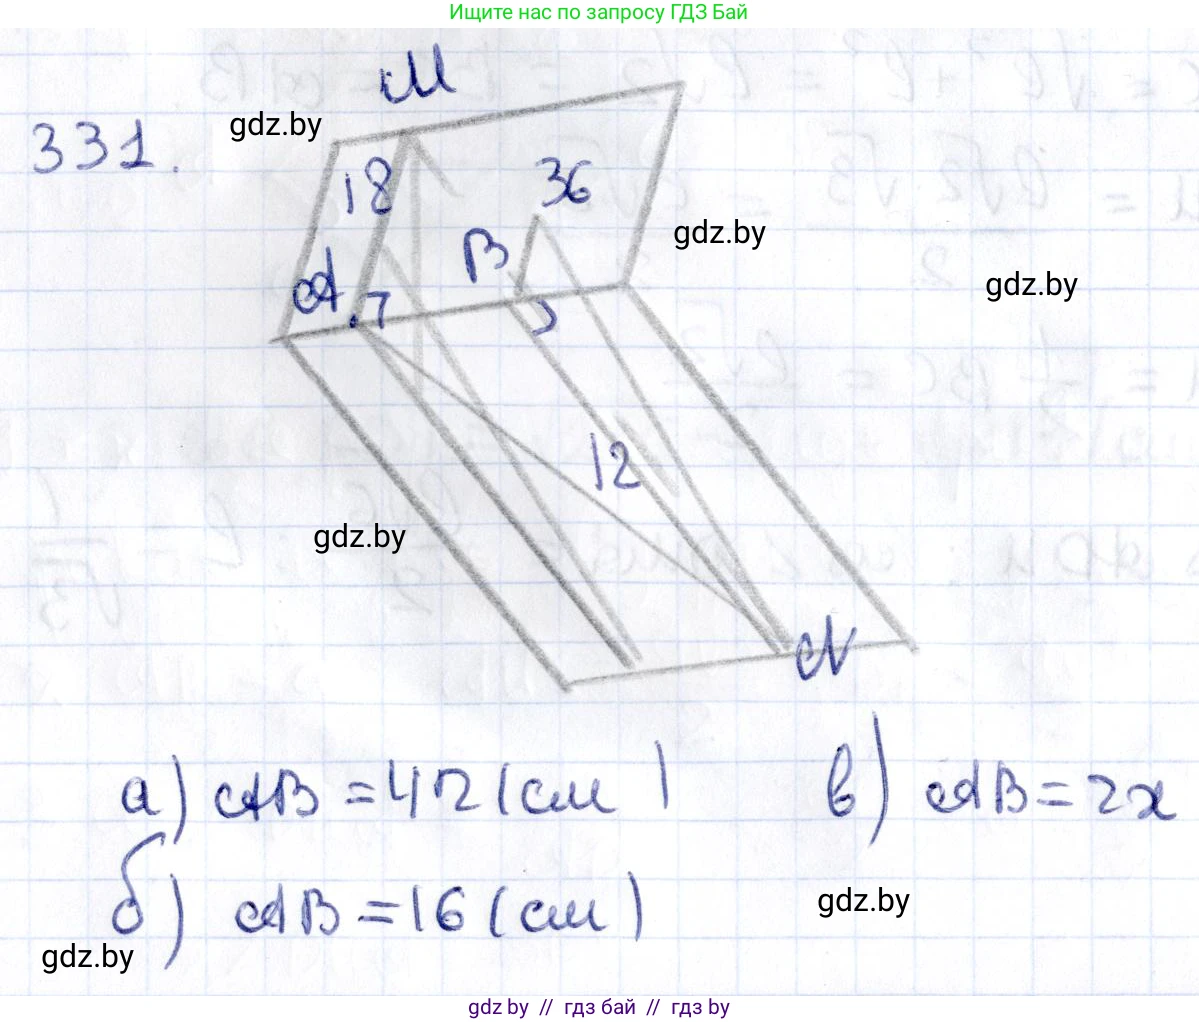 Ищите нас по запросу ГДЗ Бай
331.
gdz.by
M
18
36
gdz.by
A
B
gdz.by
12
gdz.by
N
а) AB = 42 (см)
в) AB = 2x
б) AB = 16 (см)
gdz.by
gdz.by
gdz by // гдз бай // гдз by